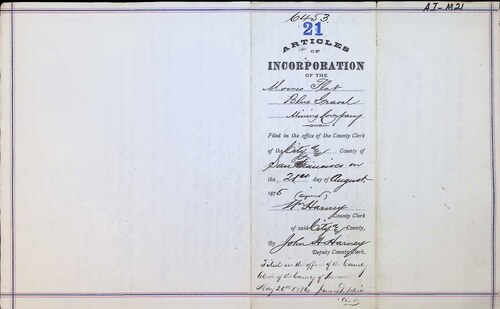 AI-M21
6453
21
ARTICLES
OF
INCORPORATION
OF THE
Moores Flat
Blue Gravel
Mining Company
Filed in the office of the County Clerk
of the City & County of
San Francisco on
the 21st day of August
1875 (signed)
Wm Harney
County Clerk
of said City & County,
By John H Harney
Deputy County Clerk.
Filed in the office of the County
Clerk of the County of
May 26th 1876
Clerk